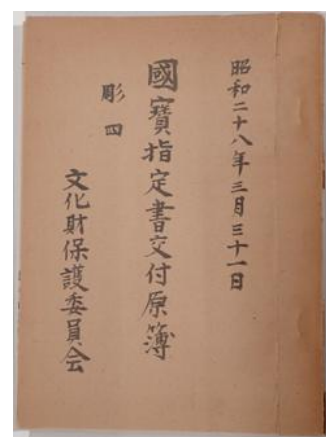 昭和二十八年三月三十一日
國寶指定書交付原簿
彫四
文化財保護委員会